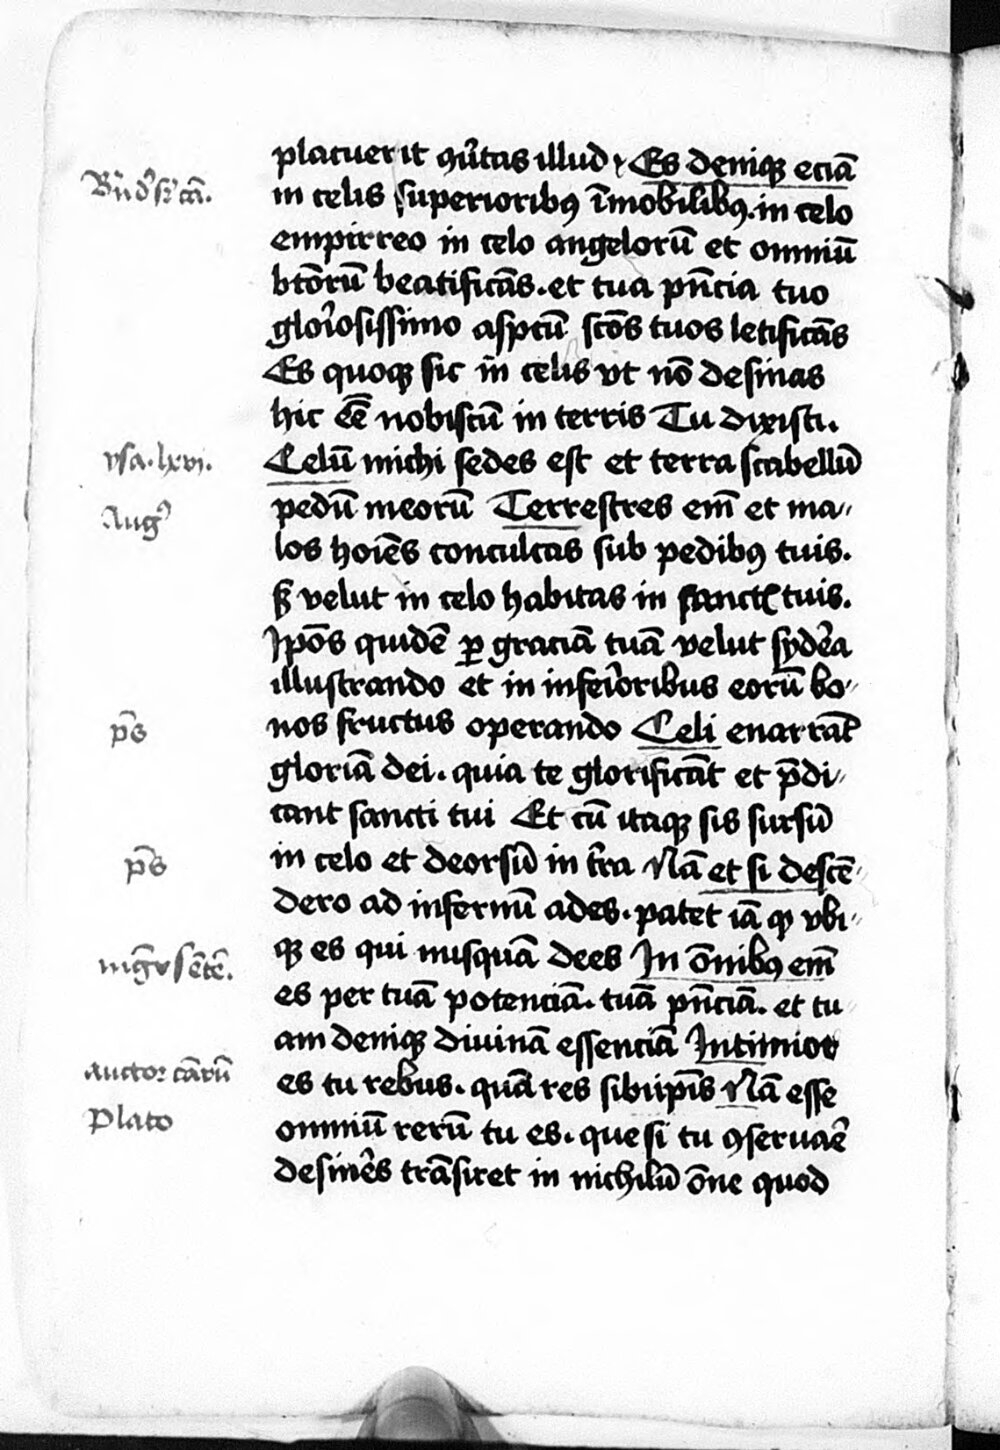 placuerit ꝯũtas illud Es deniqꝫ eciã
Bñdꝰ sr̃ cã.
in celis superioribꝰ ĩmobilibꝰ. in celo
empirreo in celo angelorũ et omniũ
btõrũ beatificãs. et tua pñcia tuo
glor̃iosissimo aspc̃tũ scõs tuos letificãs
Es quoqꝫ sic in celis vt nõ desinas
hic eẽ nobiscũ in terris Tu dixisti.
ysa. lxvj.
Celũ michi sedes est et terra scabellũ
Augꝰ
pedũ meorũ Terrestres em̃ et ma〃
los hoiẽs conculcas sub pedibꝰ tuis.
sꝫ velut in celo habitas in sanctꝭ tuis.
Jpõs quidẽ ꝑ graciã tuã velut syder̃a
illustrando et in infer̃ioribus eorũ bo〃
p̃s
nos fructus operando Celi enarrãt
gloriã dei. quia te glorificãt et p̃di〃
cant sancti tui Et cũ itaqꝫ sis sursũ
p̃s
in celo et deorsũ in tr̃a Nã et si descẽ〃
dero ad infernũ ades. patet iã ꝙ vbi〃
mg̃r sẽtẽ.
qꝫ es qui nusquã dees In õnibꝰ em̃
es per tuã potenciã. tuã pñciã. et tu〃
am deniqꝫ diuinã essenciã Intimior
auctor cãrũ
es tu rebus. quã res sibiip̃is Nã esse
Plato
omniũ rerũ tu es. que si tu ꝯseruar̃e
desiner̃es trãsiret in nichilũ õne quod